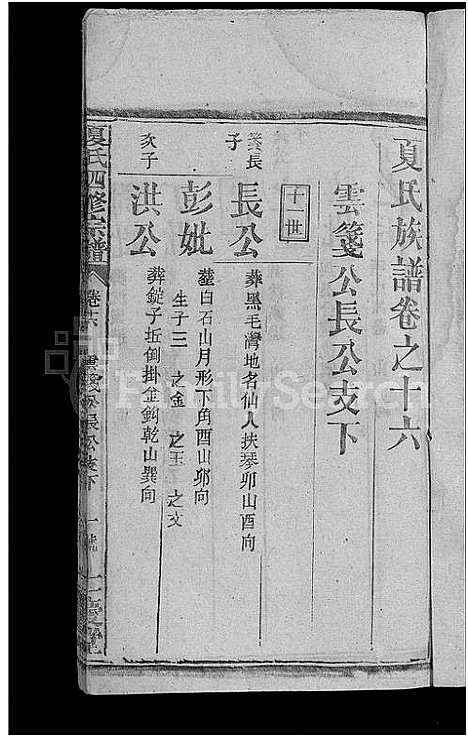 夏氏族譜卷之十六
雲箋公長公支下
十世
箋長子
長公
葬黑毛灣地名仙人扶琴卯山酉向
彭妣
葬白石山月形下角酉山卯向
生子三 之金 之玉 之文
次子
洪公
葬錠子坵倒掛金鈎乾山巽向
夏氏四修宗譜
卷十六
雲箋公長公支下
一
FamilySearch